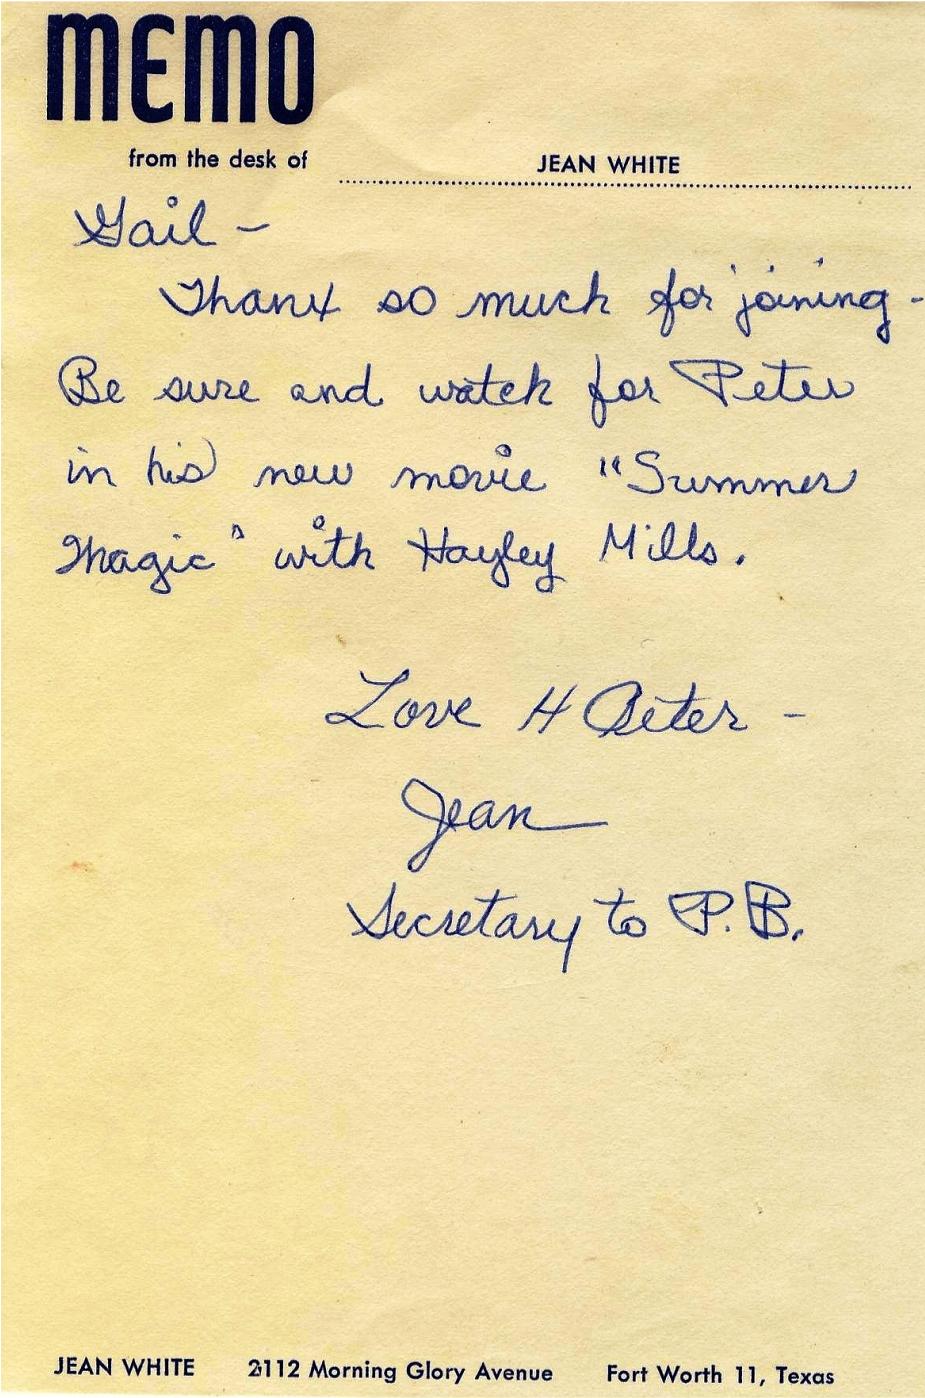 MEMO
from the desk of JEAN WHITE
Gail -
Thanx so much for joining -
Be sure and watch for Peter
in his new movie "Summer
Magic" with Hayley Mills.
Love Peter -
Jean
Secretary to P.B.
JEAN WHITE 2112 Morning Glory Avenue Fort Worth 11, Texas